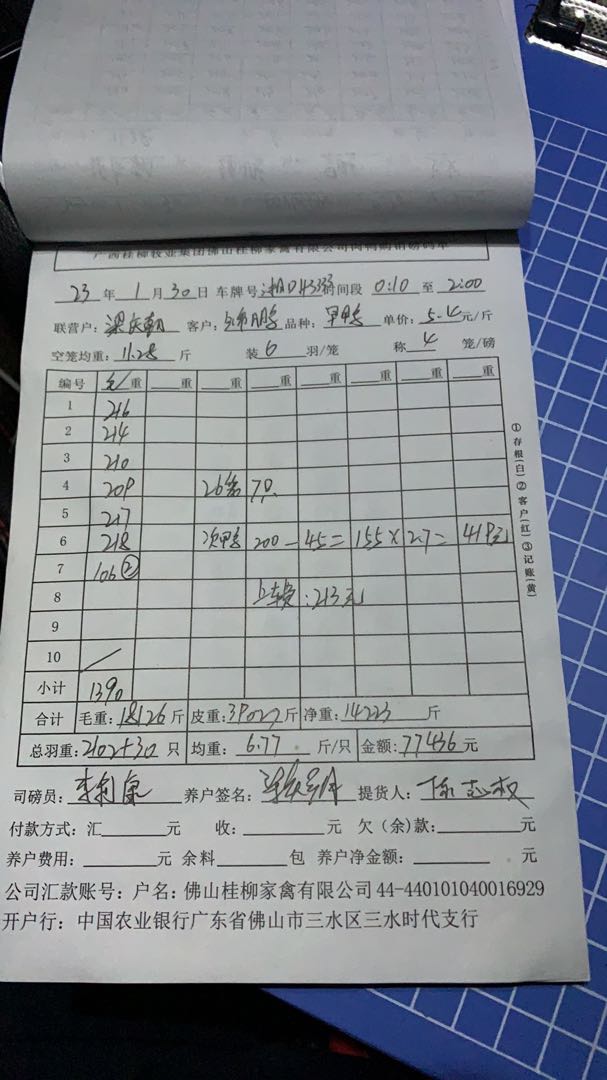 23 年 1 月 30 日 车牌号 时间段 0:10 至 2:00
联营户: 梁庆朝 客户: 品种: 单价: 5.4 元/斤
空笼均重: 11.28 斤 装 6 羽/笼 称 4 笼/磅
编号 毛/重 重 重 重 重 重 重 重
1 216
2 214
3 210
4 209 26 70
5 217
6 218 次鸭 200 - 45 = 155 × 2.7 = 419元
7 106 ②
8 上车费: 213元
9
10
小计 1390
合计 毛重: 18126 斤 皮重: 斤 净重: 14223 斤
总羽重: 2102+30 只 均重: 6.77 斤/只 金额: 77436 元
司磅员: 养户签名: 提货人: 陈志权
付款方式: 汇 元 收: 元 欠(余)款: 元
养户费用: 元 余料 包 养户净金额: 元
公司汇款账号: 户名: 佛山桂柳家禽有限公司 44-440101040016929
开户行: 中国农业银行广东省佛山市三水区三水时代支行
①存根(白)②客户(红)③记账(黄)